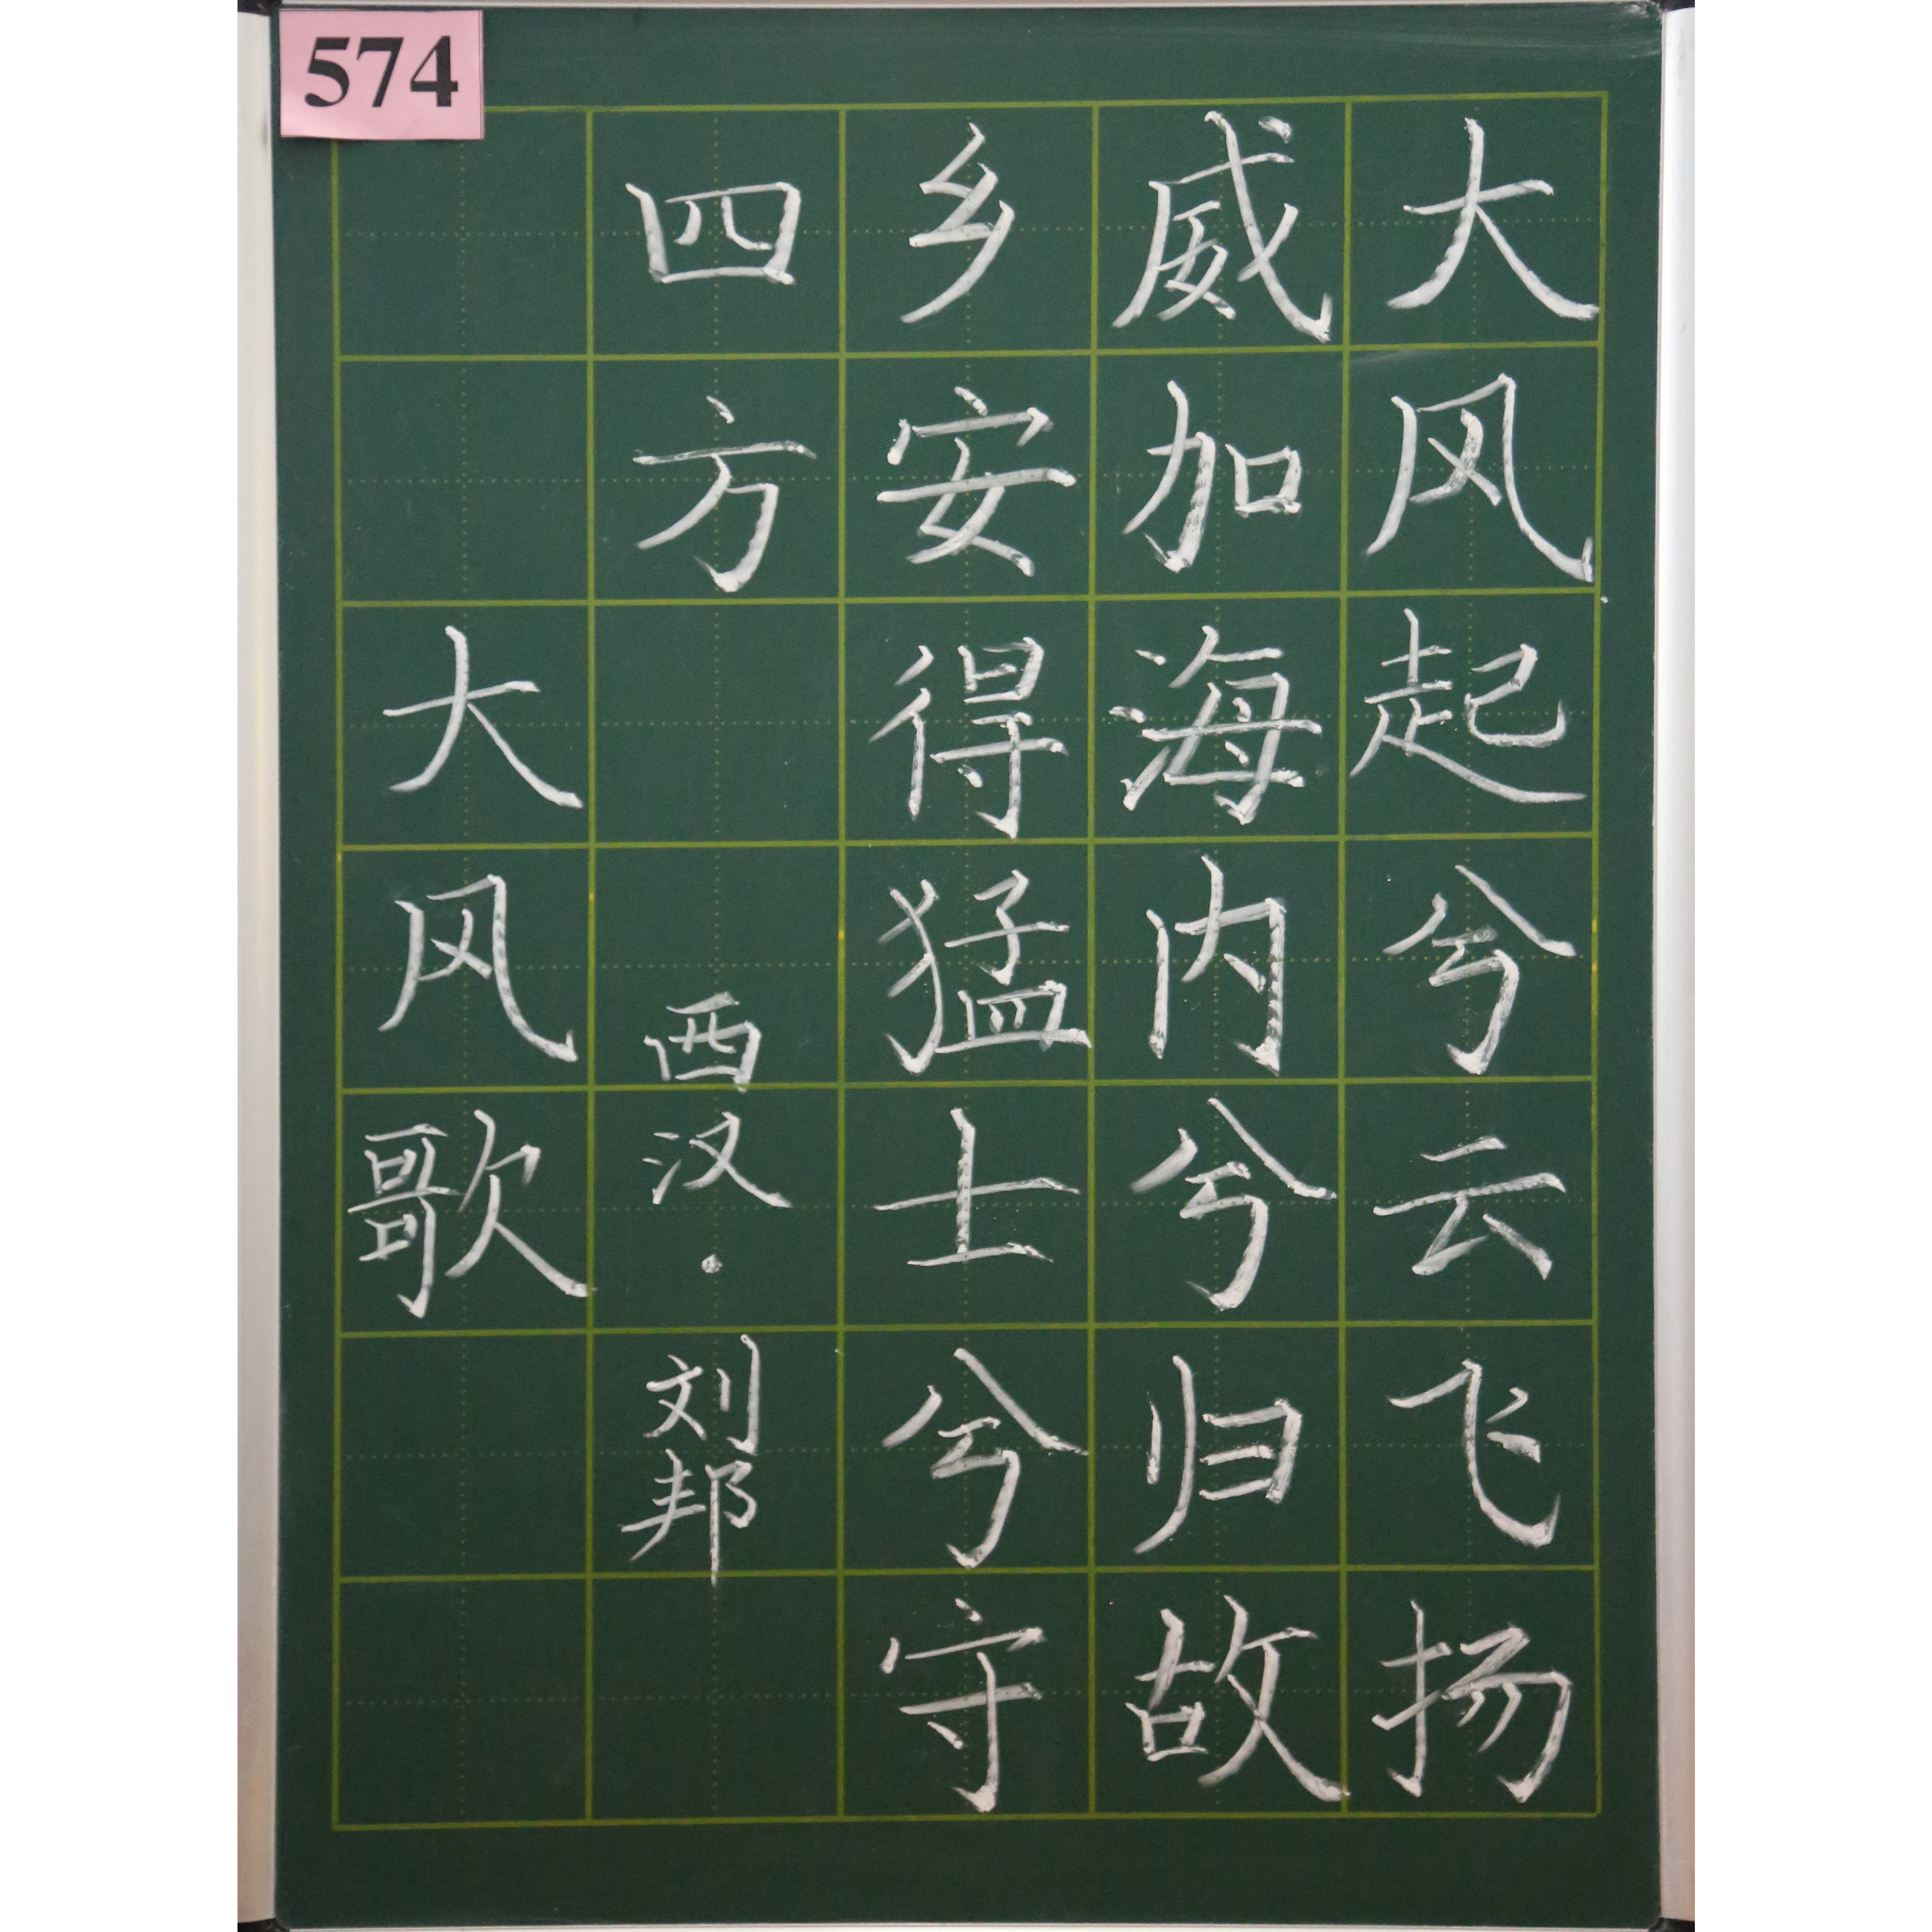 574
大风起兮云飞扬
威加海内兮归故
乡安得猛士兮守
四方
西汉·刘邦
大风歌